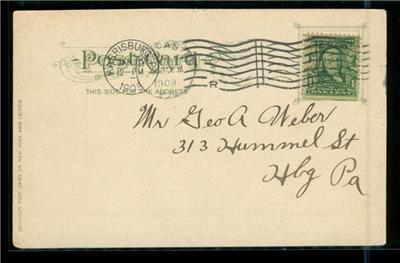 Post Card
HARRISBURG
12-PM
1908
1908
R
THIS SIDE FOR THE ADDRESS
Mr Geo A Weber
313 Hummel St
Hbg Pa